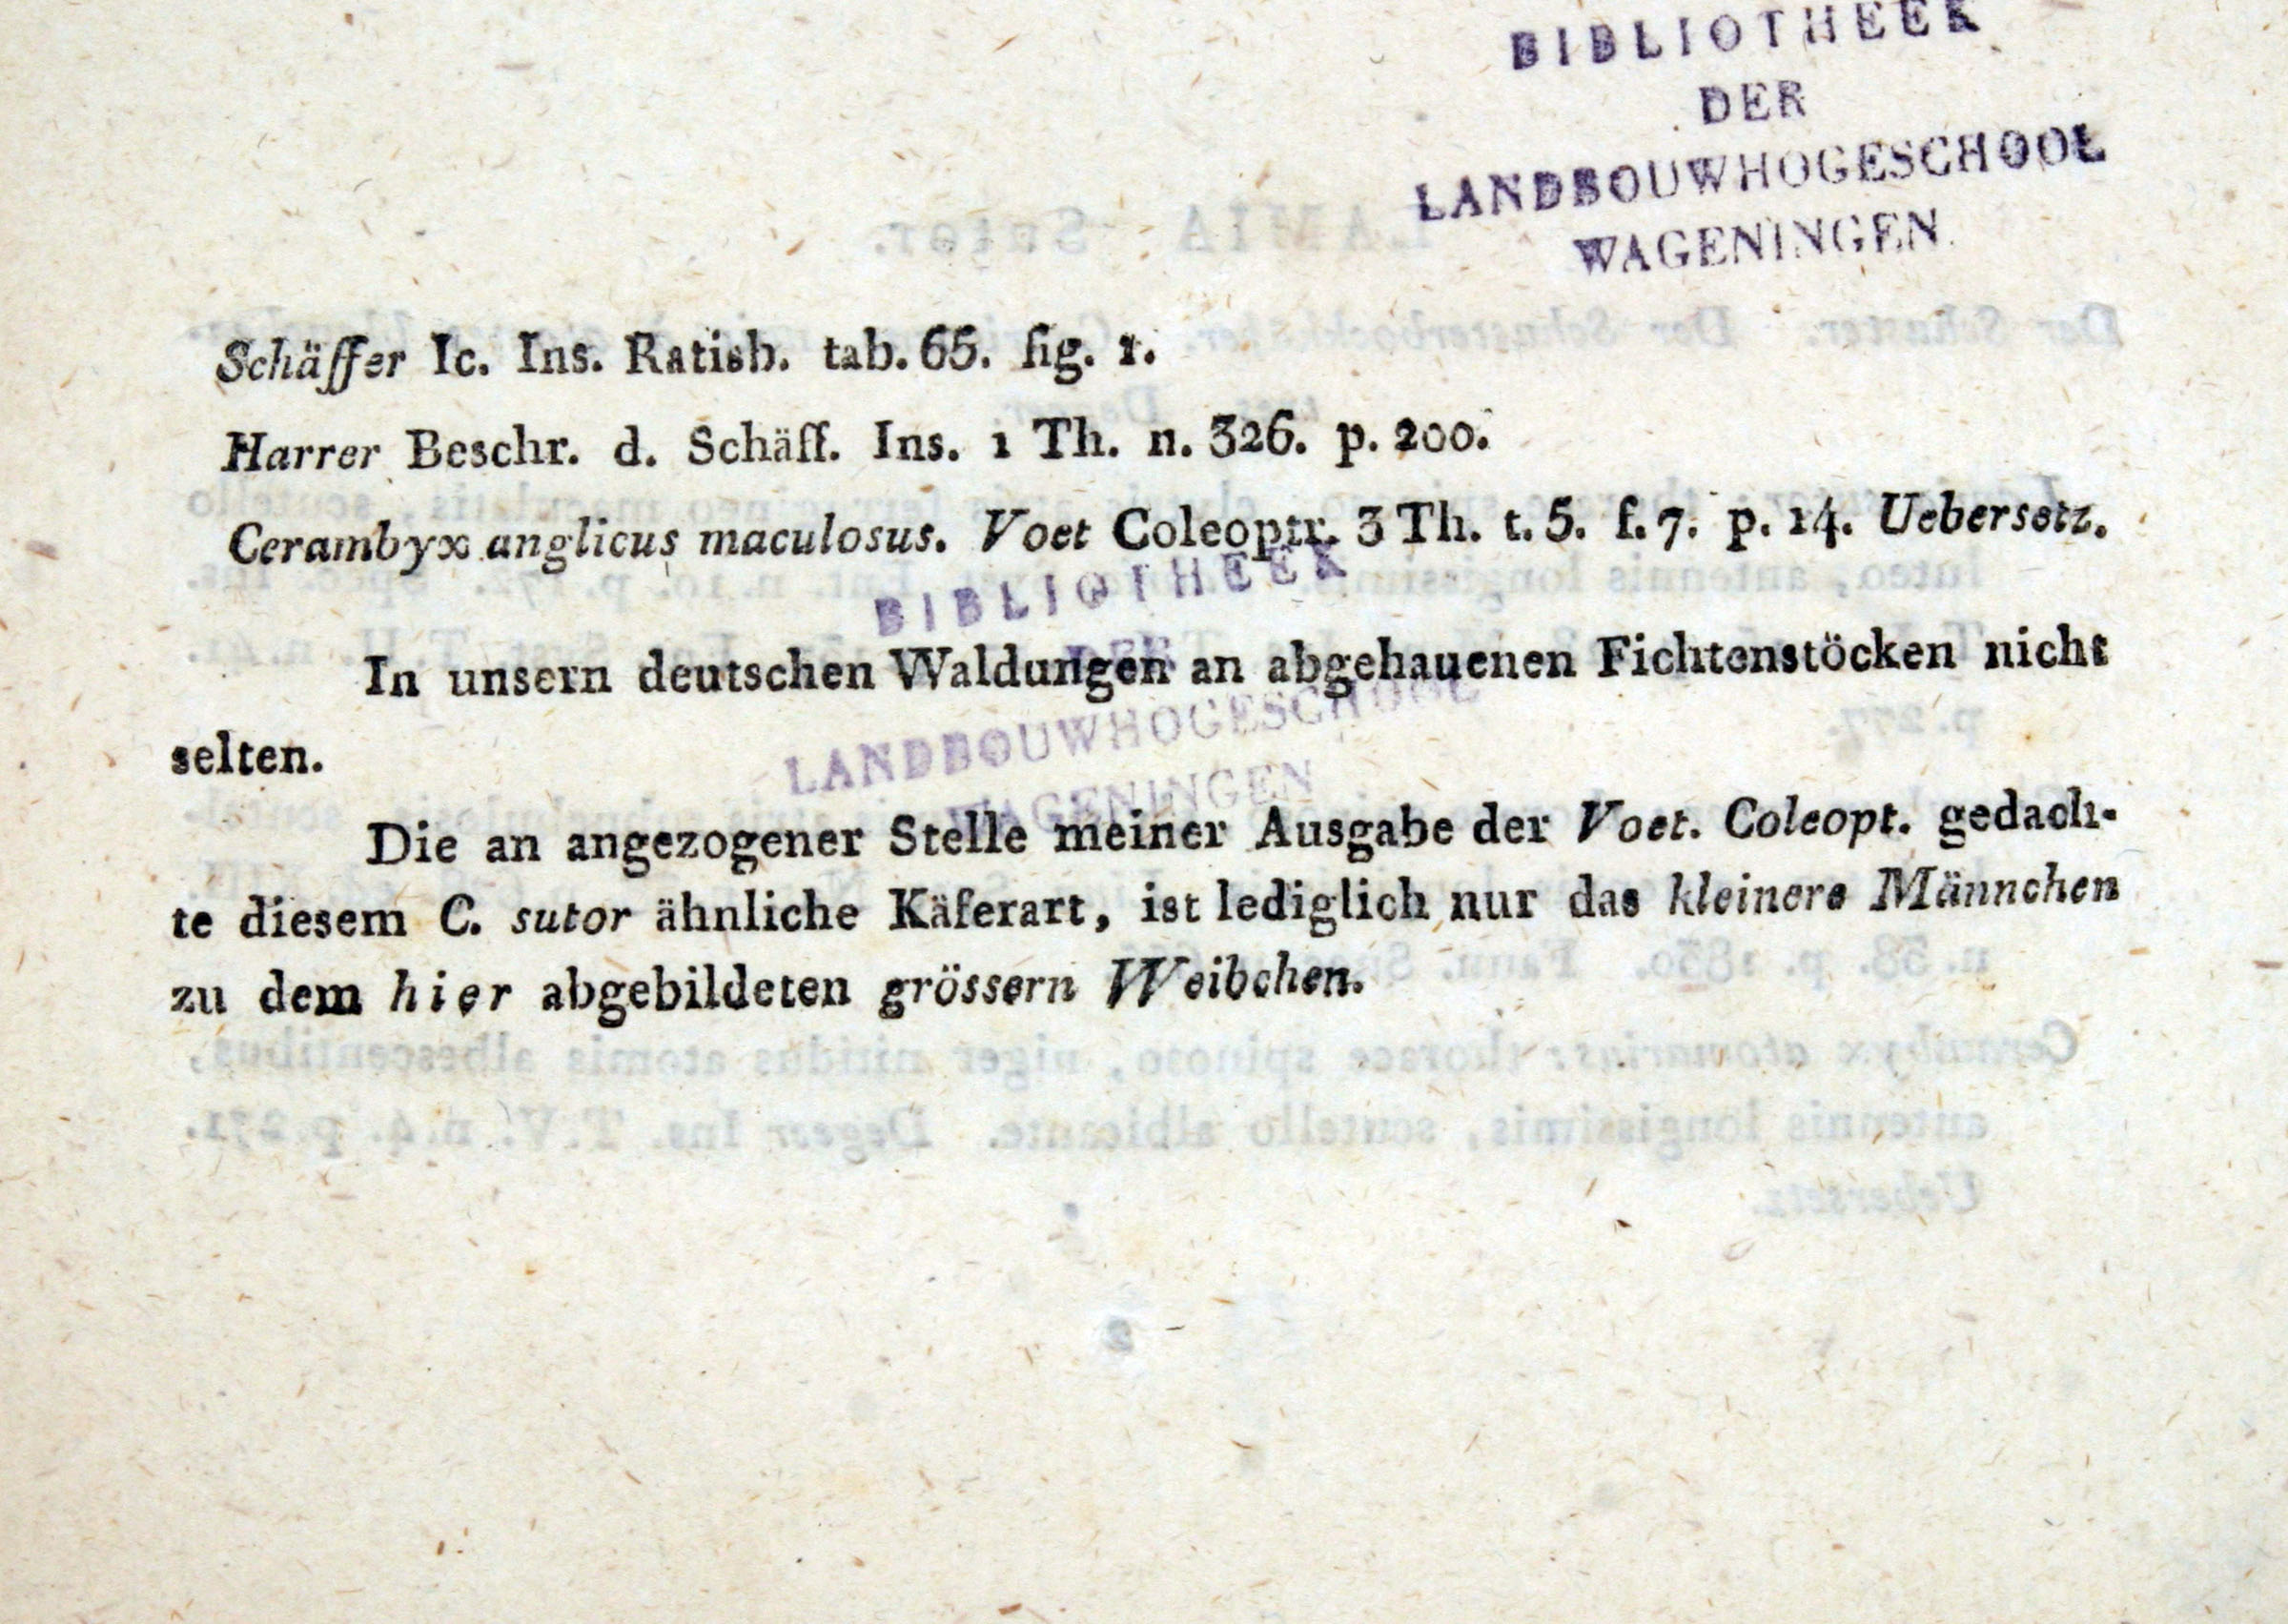 BIBLIOTHEEK
DER
LANDBOUWHOGESCHOOL
WAGENINGEN.
Schäffer Ic. Ins. Ratisb. tab. 65. fig. 1.
Harrer Beschr. d. Schäff. Ins. 1 Th. n. 326. p. 200.
Cerambyx anglicus maculosus. Voet Coleoptr. 3 Th. t. 5. f. 7. p. 14. Uebersetz.
BIBLIOTHEEK
DER
In unsern deutschen Waldungen an abgehauenen Fichtenstöcken nicht
LANDBOUWHOGESCHOOL
selten.
WAGENINGEN
Die an angezogener Stelle meiner Ausgabe der Voet. Coleopt. gedach-
te diesem C. sutor ähnliche Käferart, ist lediglich nur das kleinere Männchen
zu dem hier abgebildeten grössern Weibchen.